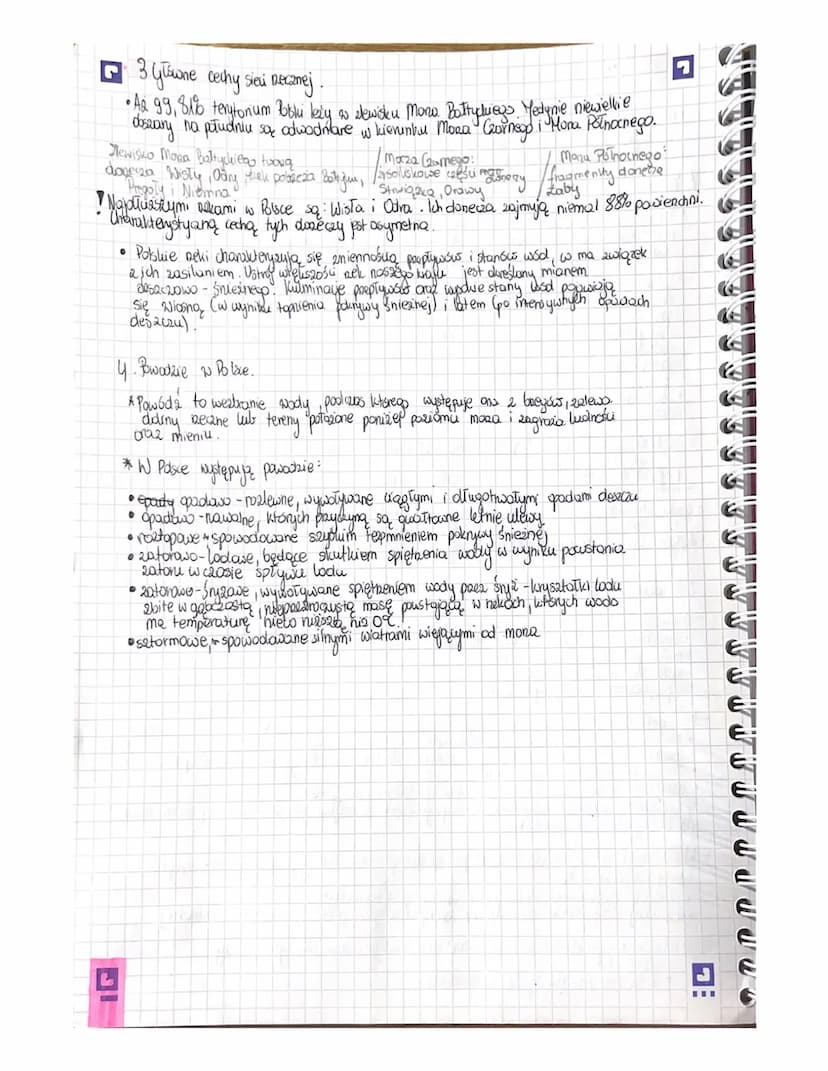 3 Główne cechy sieci rzecznej.
• Aż 99,81% terytorium Polski leży w zlewisku Morza Bałtyckiego. Jedynie niewielkie
obszary na południu są odwodniane w kierunku Morza Czarnego i Morza Północnego.
Zlewisko Morza Bałtyckiego tworzą
dorzecza Wisły, Odry, rzek pobrzeża Bałtyku,
Pregoły i Niemna
/ Morza Czarnego:
wysuniętę części
Strwiąża, Orawy
/ Morza Północnego:
fragmenty dorzecza
Łaby
! Najdłuższymi rzekami w Polsce są: Wisła i Odra. Ich dorzecza zajmują niemal 88% powierzchni.
Charakterystyczną cechą tych dorzeczy jest asymetria.
• Polskie rzeki charakteryzują się zmiennością przepływów i stanów wód, co ma związek
z ich zasilaniem. Ustrój większości rzek naszego kraju jest określany mianem
deszczowo - śnieżnego. Kulminacje przepływów oraz wysokie stany wód pojawiają
się wiosną (w wyniku topnienia pokrywy śnieżnej) i latem (po intensywnych opadach
deszczu).
4. Powodzie w Polsce.
* Powódź to wezbranie wody, podczas którego występuje ona z brzegów, zalewa
doliny rzeczne lub tereny położone poniżej poziomu morza i zagraża ludności
oraz mieniu.
* W Polsce występują powodzie:
• opadowo - rozlewne, wywoływane ciągłymi i długotrwałymi opadami deszczu
• opadowo - nawalne, których przyczyną są gwałtowne letnie ulewy
• roztopowe - spowodowane szybkim topnieniem pokrywy śnieżnej
• zatorowo - lodowe, będące skutkiem spiętrzenia wody w wyniku powstania
zatoru w czasie spływu lodu
• zatorowo - śryżowe, wywoływane spiętrzeniem wody przez śryż - kryształki lodu
zbite w gąbczastą, nieprzezroczystą masę powstającą w rzekach, których woda
ma temperaturę nieco niższą niż 0°C.
• sztormowe, spowodowane silnymi wiatrami wiejącymi od morza